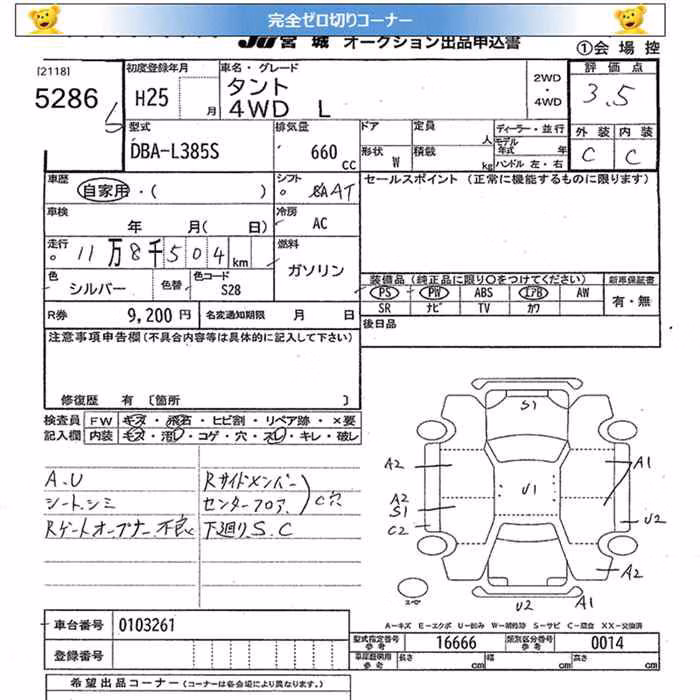 完全ゼロ切りコーナー
JU 宮城 オークション出品申込書
①会場控
[2118]
5286
初度登録年月
H25 月
車名・グレード
タント
4WD L
2WD
・
4WD
評価点
3.5
外装 内装
C C
型式
DBA-L385S
排気量
660 cc
ドア
形状 W
定員 人
積載 kg
ディーラー・並行
モデル年式 年
ハンドル 左・右
車歴
自家用・( )
シフト
AT
セールスポイント (正常に機能するものに限ります)
車検
年 月( 日)
冷房
AC
走行
11万8千504km
燃料
ガソリン
色
シルバー
色替
色コード
S28
装備品 (純正品に限り○をつけてください)
新車保証書
PS PW ABS エアB AW
SR ナビ TV カワ
有・無
R券 9,200円
名変通知期限 月 日
後日品
注意事項申告欄(不具合内容等は具体的に記入して下さい)
修復歴 有 〔箇所 〕
検査員 FW キズ・飛石・ヒビ割・リペア跡・×要
記入欄 内装 キズ・汚レ・コゲ・穴・スレ・キレ・破レ
A.U
シート.シミ
Rゲートオープナー不良
Rサイドメンバー
センターフロア.
C穴
下廻りS.C
S1
A2
A1
U1
A2
S1
C2
U2
A2
A1
U2
スペアー
A-キズ E-エクボ U-凹み W-補修跡 S-サビ C-腐食 XX-交換済
車台番号 0103261
登録番号
型式指定番号 参考 16666
類別区分番号 参考 0014
車庫証明用 参考 長さ cm 幅 cm 高さ cm
希望出品コーナー (コーナーは各会場により異なります。)